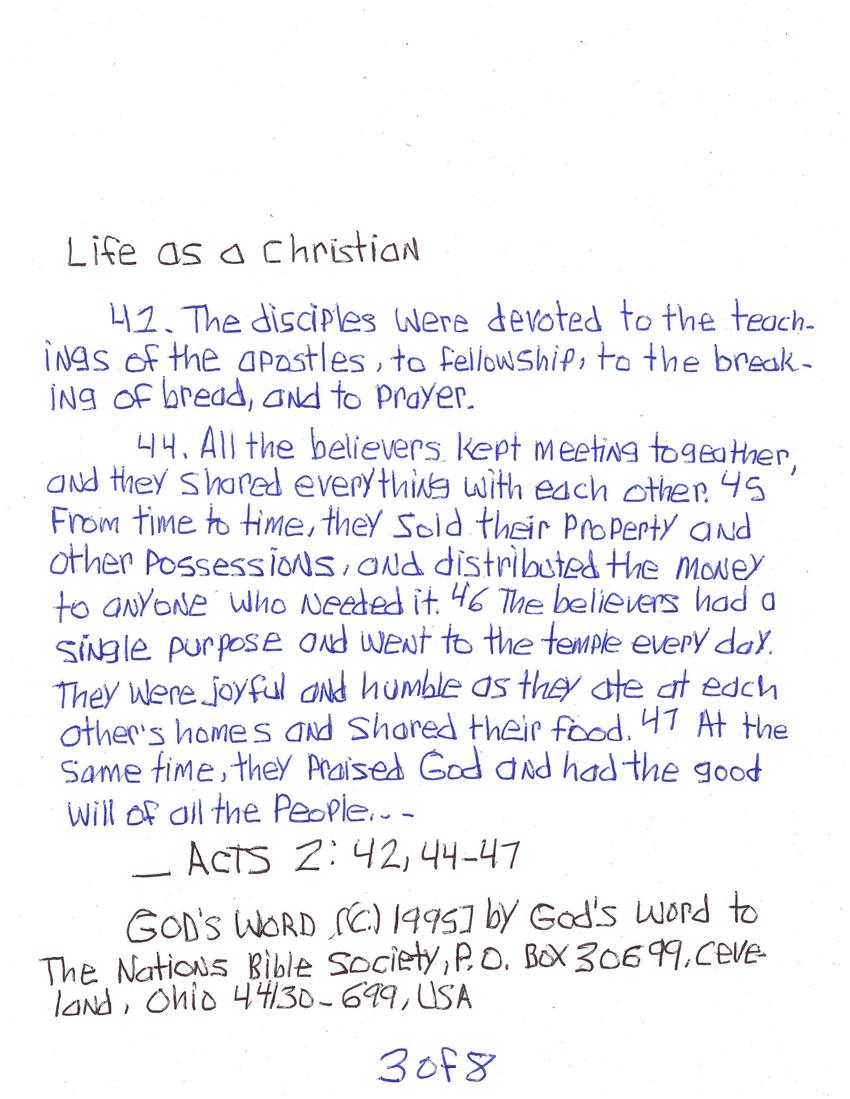 Life as a Christian
42. The disciples were devoted to the teach-
ings of the apostles, to fellowship, to the break-
ing of bread, and to prayer.
44. All the believers kept meeting togeather,
and they shared everything with each other. 45
From time to time, they sold their property and
other possessions, and distributed the money
to anyone who needed it. 46 The believers had a
single purpose and went to the temple every day.
They were joyful and humble as they ate at each
other's homes and shared their food. 47 At the
same time, they praised God and had the good
will of all the people...
— ACTS 2:42, 44-47
GOD'S WORD [(C.) 1995] by God's Word to
The Nations Bible Society, P.O. Box 30699, Ceve-
land, Ohio 44130-699, USA
3 of 8